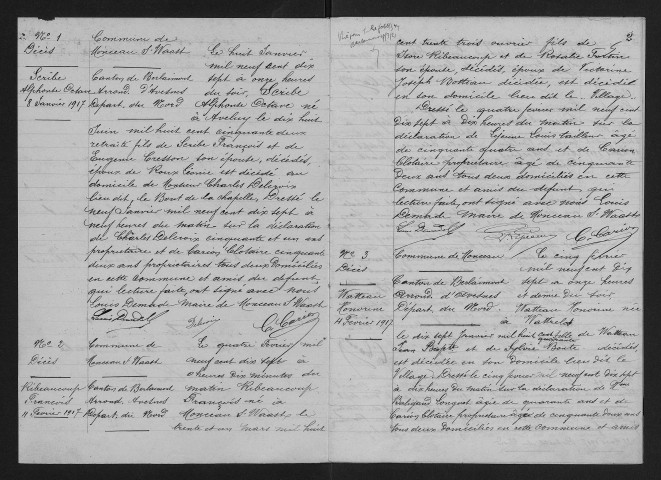 No 1
Décès
Scribe
Alphonte Octave
8 Janvier 1917
Commune de
Monceau St Waast
Canton de Berlaimont
Arrond. d'Avesnes
Départ. du Nord
Le huit Janvier
mil neuf cent dix
sept à onze heures
du soir, Scribe
Alphonte Octave né
à Aveluy le dix huit
Juin mil huit cent cinquante deux
retraité fils de Scribe François et de
Eugénie Cresson son épouse, décédés,
époux de Roux Léonie est décédé au
domicile de Monsieur Charles Delcroix
lieu dit, le Bout de la chapelle, Dressé le
neuf Janvier mil neuf cent dix sept à
neuf heures du matin sur la déclaration
de Charles Delcroix cinquante et un ans
propriétaire et de Cariou Clotaire cinquante
deux ans propriétaires tous deux Domiciliés
en cette commune et amis du défunt
qui lecture faite, ont signé avec nous
Louis Demade Maire de Monceau St Waast
No 2
Décès
Ribeaucoup
François
4 Février 1917
Commune de
Monceau St Waast
Canton de Berlaimont
Arrond. Avesnes
Départ. du Nord
Le quatre Février mil
neuf cent dix sept à
heures dix minutes du
matin Ribeaucoup
François né à
Monceau St Waast le
trente et un mars mil huit
cent trente trois ouvrier fils de
Ribeaucoup et de Rosalie
son épouse, décédés, époux de Victorine
Joseph Botteau décédée, est décédé
en son domicile lieu dit le Village.
Dressé le quatre février mil neuf cent
dix sept à Dix heures du matin sur la
déclaration de Lejeune Louis tailleur âgé
de cinquante quatre ans et de Cariou
Clotaire propriétaire âgé de cinquante
deux ans tous deux domiciliés en cette
Commune et amis du défunt, qui
lecture faite, ont signé avec nous Louis
Demade Maire de Monceau St Waast
No 3
Décès
Watteau
Honorine
4 Février 1917
Commune de Monceau
Canton de Berlaimont
Arrond. d'Avesnes
Départ. du Nord.
Le cinq février
mil neuf cent dix
sept à onze heures
et demie du soir
Watteau Honorine née
à
le dix sept Janvier mil huit cent quarante fille de Watteau
Jean Bapte et de décédés,
est décédée en son domicile lieu dit le
Village. Dressé le cinq février mil neuf cent dix sept
à dix heures du matin sur la déclaration de
âgé de quarante ans et de
Cariou Clotaire propriétaire âgé de cinquante deux ans
tous deux domiciliés en cette commune et amis